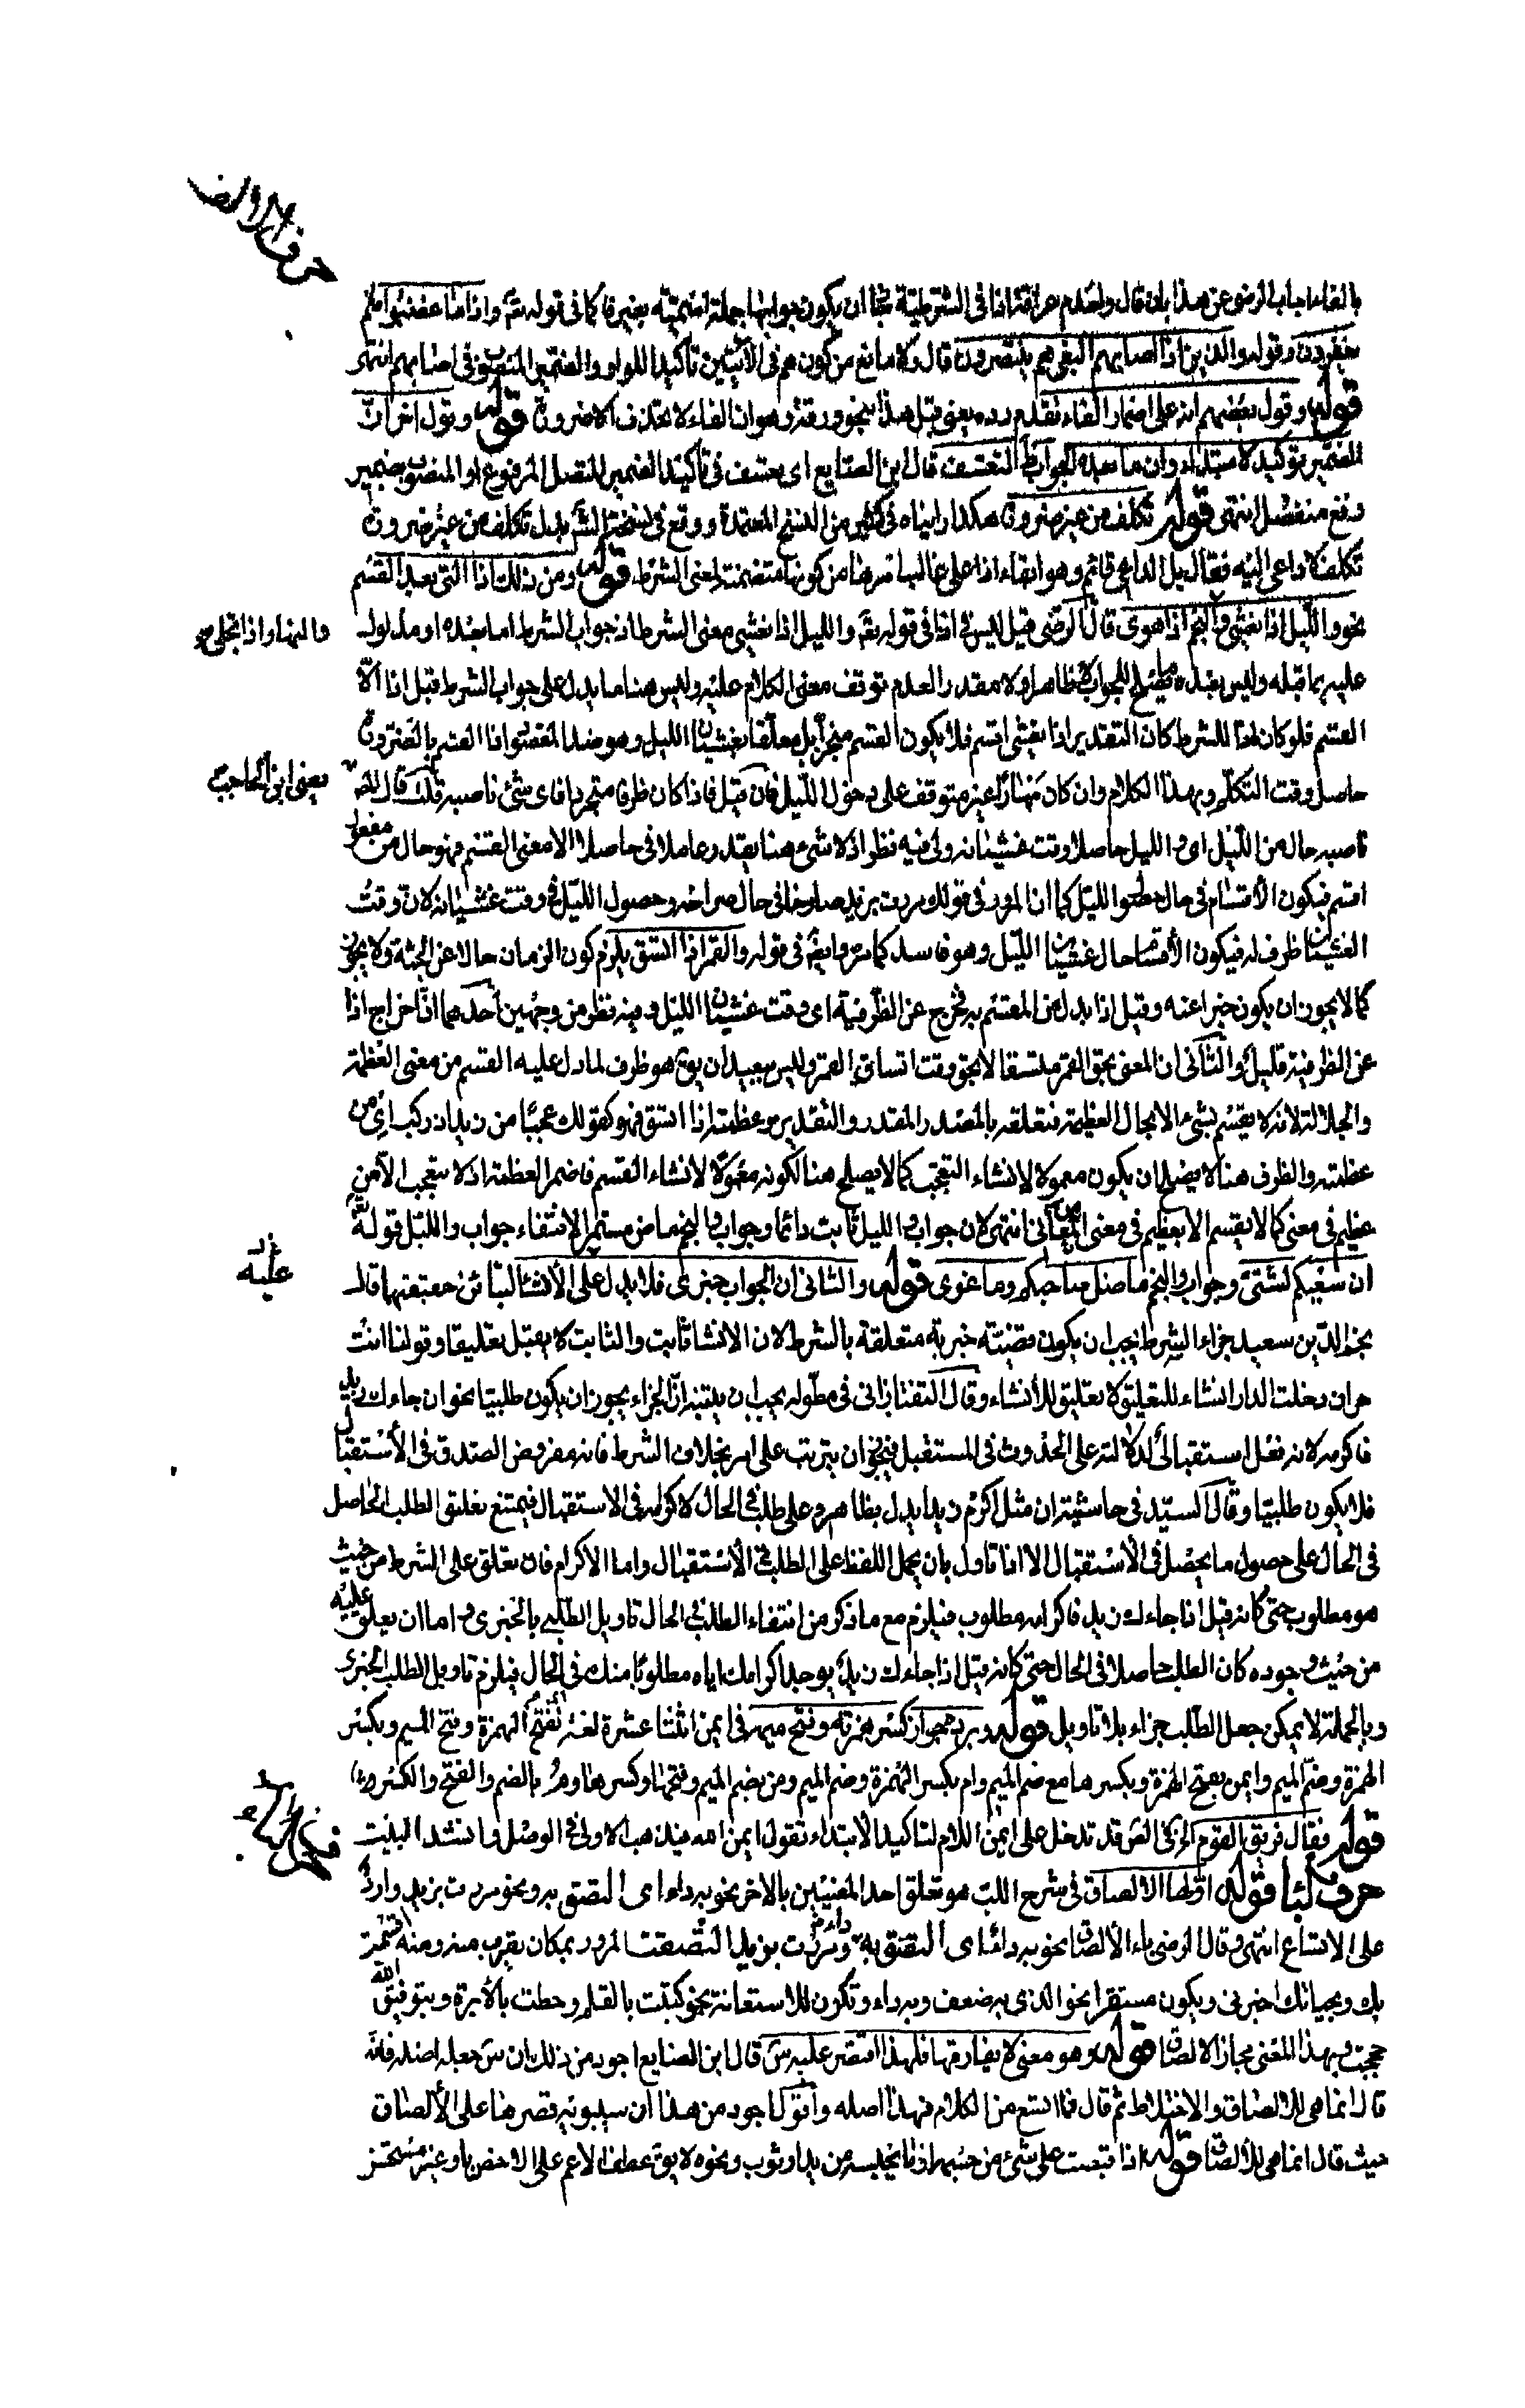 بالفاء اجاب الرضي عن هذا بان قال ولعدم عراقة اذا في الشرطية جاز ان يكون جوابها جملة اسمية بغير فاء كما في قوله تعالى واذا ما غضبوا هم
يغفرون وقوله والذين اذا اصابهم البغي هم ينتصرون قال ولا مانع من كون هم في الآيتين تأكيدا للواو والضمير المنصوب في اصابهم انتهى
قوله وقول بعضهم انه على اضمار الفاء تقدم رده يعني قبل هذا بنحو ورقة وهو ان الفاء لا تحذف الا ضرورة قوله وقول اخر ان
الضمير توكيد لا مبتدا وان ما بعده الجواب ظاهر التعسف قال ابن الصايغ اي يعسف في تأكيد الضمير المتصل المرفوع او المنصوب بضمير
رفع منفصل انتهى قوله تكلف من غير ضرورة هكذا رايناه في كثير من النسخ المعتمدة ووقع في نسخة الشرح بدل تكلف من غير ضرورة
تكلف لا داعي اليه فقال بل الداعي قائم وهو ابقاء اذا على غالب امرها من كونها متضمنة لمعنى الشرط قوله ومن ذلك اذا التي بعد القسم
نحو والليل اذا يغشى والنجم اذا هوى قال الرضي قيل ليس في اذا في قوله تعالى والليل اذا يغشى معنى الشرط اذ جواب الشرط اما بعده او مدلول
والنهار اذا تجلى صح
عليه بما قبله وليس بعده ما يصلح للجواب لا ظاهرا ولا مقدر العدم توقف معنى الكلام عليه وليس هنا ما يدل على جواب الشرط قبل اذا الا
القسم فلو كان اذا للشرط كان التقدير اذا يغشى اقسم فلا يكون القسم منجزا بل معلقا بغشيان الليل وهو ضد المقصود اذا القسم بالضرورة
حاصل وقت التكلم بهذا الكلام وان كان نهارا غير متوقف على دخول الليل فان قيل فاذا كان ظرفا متجردا فاي شيء ناصبه قلت قال المص
يعني ابن الحاجب
ناصبه حال من الليل اي والليل حاصلا وقت غشيانه ولي فيه نظر اذ لا شيء هنا يقدر عاملا في حاصلا الا معنى القسم فهو حال من مفعول
اقسم فيكون الاقسام في حال حصول الليل كما ان المرور في قولك مررت بزيد صارخا في حال صراخه وحصول الليل في وقت غشيانه لان وقت
الغشيان ظرف له فيكون الاقسام حال غشيان الليل وهو فاسد كما مر وايضا في قوله والقمر اذا اتسق يلزم كون الزمان حالا عن الجثة ولا يجوز
كما لا يجوز ان يكون خبرا عنه وقيل اذا بدل من المقسم به مخرج عن الظرفية اي وقت غشيان الليل وفيه نظر من وجهين احدهما ان اخراج اذا
عن الظرفية قليل والثاني ان المعنى بحق القمر متسقا لا بحق وقت اتساق القمر وليس ببعيد ان يقال هو ظرف لما دل عليه القسم من معنى العظمة
والجلالة لانه لا يقسم بشيء الا لحال العظيمة فتعلقه بالمصدر المقدر والتقدير وعظمته اذا اتسق فهو كقولك عجبا من زيد اذ ركب اي من
عظمته والظرف هنا لا يصلح ان يكون معمولا لانشاء التعجب كما لا يصلح هنا لكونه معمولا لانشاء القسم فاضمر العظمة اذ لا يتعجب الا من
عظيم في معنى كما لا يقسم الا بعظيم في معنى من المعاني انتهى لان جواب والليل ثابت دائما وجواب والنجم ماض مستمر الانتفاء جواب والليل قوله تعالى
ان سعيكم لشتى وجواب والنجم ما ضل صاحبكم وما غوى قوله والثاني ان الجواب خبري فلا يدل على الانشاء لتباين حقيقتهما قال
عليه
نجم الدين سعيد جزاء الشرط يجب ان يكون قضية خبرية متعلقة بالشرط لان الانشاء ثابت والثابت لا يقبل تعليقا وقولنا انت
حر ان دخلت الدار انشاء للتعليق لا تعليق للانشاء وقال التفتازاني في مطوله يجب ان يتنبه ان الجزاء يجوز ان يكون طلبيا نحو ان جاءك زيد
فاكرمه لانه فعل استقبالي لدلالته على الحدوث في المستقبل فيجوز ان يترتب على امر بخلاف الشرط فانه مفروض الصدق في الاستقبال
فلا يكون طلبيا وقال السيد في حاشيته ان مثل اكرم زيدا يدل بظاهره على طلب في الحال لاكرامه في الاستقبال فيمتنع تعليق الطلب الحاصل
في الحال على حصول ما يحصل في الاستقبال الا اذا تاول بان يحمل اللفظ على الطلب في الاستقبال واما الاكرام فان تعلق على الشرط من حيث
هو مطلوب حتى كانه قيل اذا جاءك زيد فاكرامه مطلوب فيلزم مع ما ذكر من انتفاء الطلب في الحال تاويل الطلبي بالخبري واما ان يعلق عليه
من حيث وجوده كان الطلب حاصلا في الحال حتى كانه قيل اذا جاءك زيد يوجد اكرامك اياه مطلوبا منك في الحال فيلزم تاويل الطلب بالخبري
وبالجملة لا يمكن جعل الطلب جزاء بلا تاويل قوله ويرده جواز كسر همزته وفتح ميمه في ايمن اثنتا عشرة لغة بفتح الهمزة وفتح الميم وبكسر
الهمزة وضم الميم وايمن بفتح الهمزة وبكسرها مع ضم الميم وام بكسر الهمزة وضم الميم ومن بضم الميم وفتحها وكسرها وم بالضم والفتح والكسر
قوله فقال فريق القوم قد تدخل على ايمن اللام لتاكيد الابتداء تقول ايمن الله فيذهب الاولى في الوصل وانشد البيت
حرف الباء قوله اولها الالصاق في شرح اللب هو تعلق احد المعنيين بالاخر نحو به داء اي التصق به ونحو مررت بزيد وارد
على الاتساع انتهى وقال الرضي باء الالصاق نحو به داء اي التصق به ومررت بزيد التصقت المرور بمكان يقرب منه ومنه اقسمت
بك وبحياتك اخبرني ويكون مستقرا نحو الذي به ضعف وبه داء وتكون للاستعانة نحو كتبت بالقلم وخطت بالابرة وبتوفيق الله
حججت وبهذا المعنى مجاز الالصاق قوله وهو معنى لا يفارقها فلهذا اقتصر عليه س قال ابن الصايغ اجود من ذلك ان س جعله اصله فانه
قال انما هي للالصاق والاختلاط ثم قال فما اتسع من الكلام فهذا اصله واقول اجود من هذا ان سيبويه قصرها على الالصاق
حيث قال انما هي للالصاق قوله اذا قبضت على شيء من جسمه او ما يحبسه من يد او ثوب ونحوه لا يق عطف الاعم على الاخص باو غير مستحسن